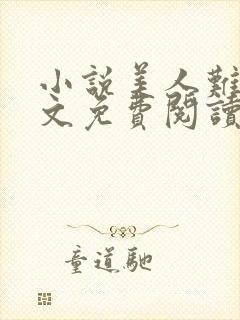 小說美人難
文免費閱讀
童道馳